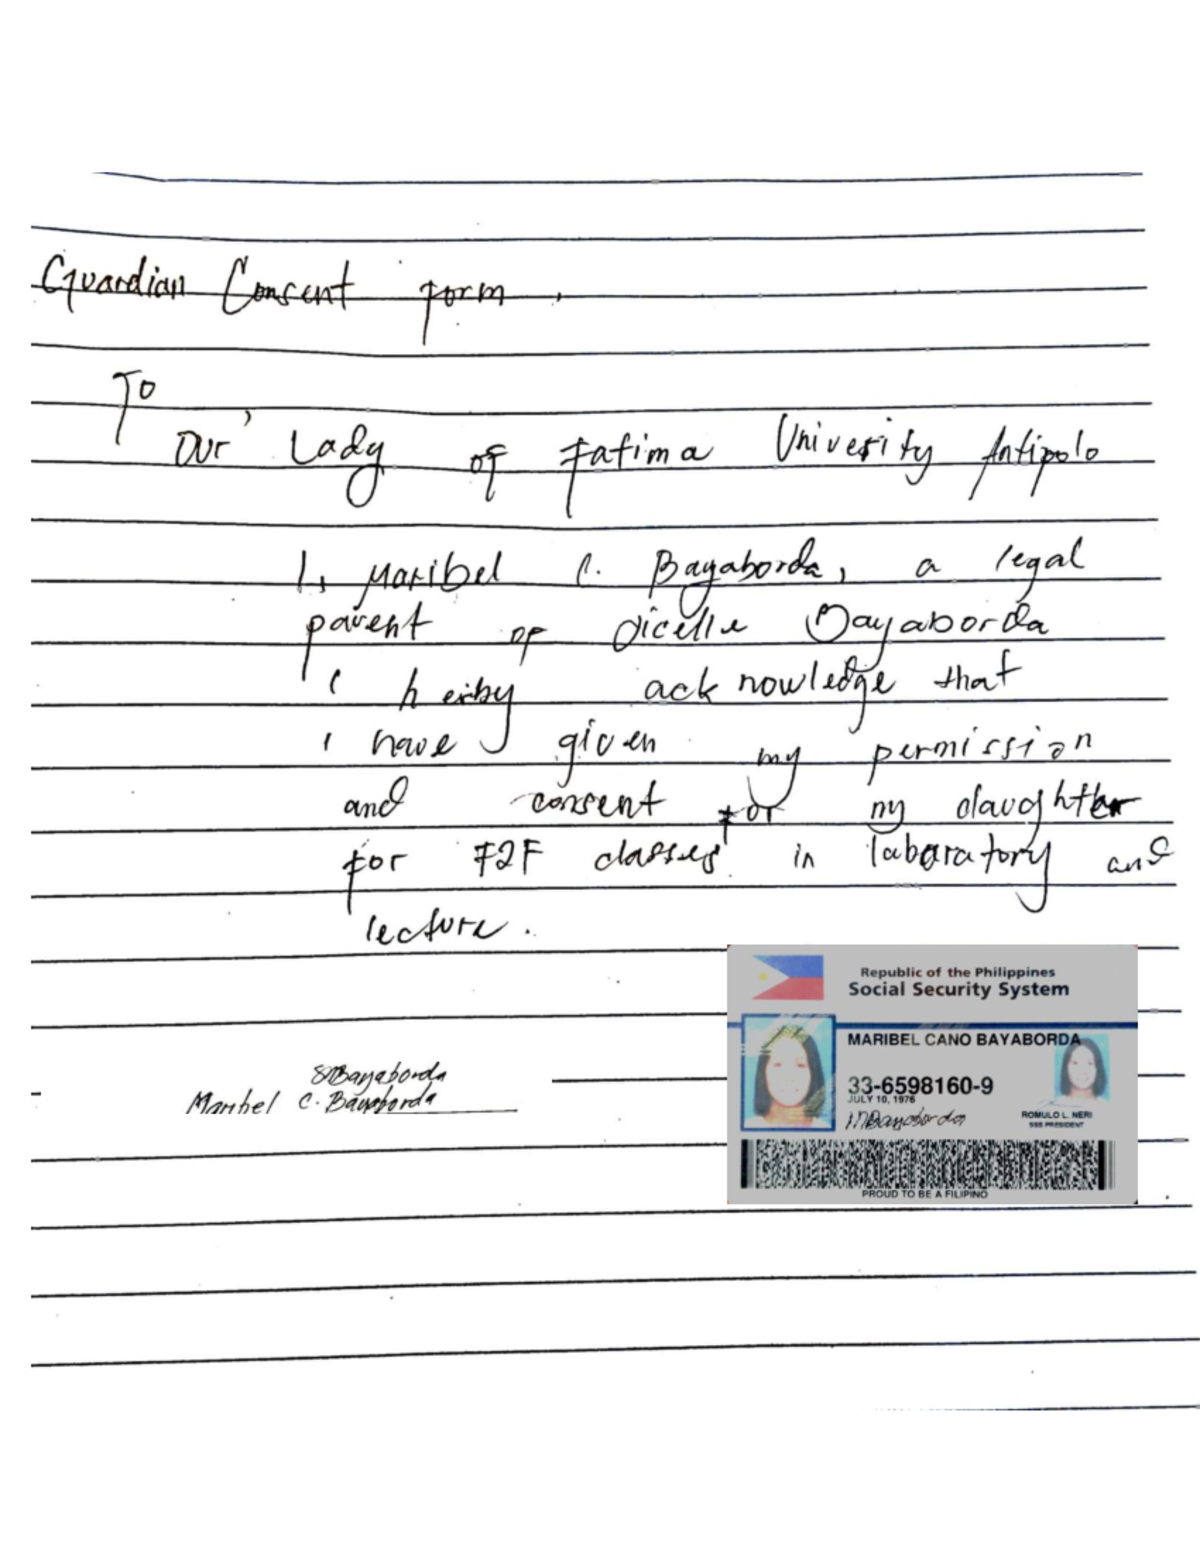 Guardian Consent form.
To
Our Lady of Fatima Univerity Antipolo
I, Maribel C. Bayaborda, a legal
parent of Dicelle Bayaborda
i heriby acknowledge that
i have given my permission
and consent for my daughter
for F2F classes in labaratory and
lecture.
Republic of the Philippines
Social Security System
MARIBEL CANO BAYABORDA
33-6598160-9
JULY 10, 1976
MBayaborda
ROMULO L. NERI
SSS PRESIDENT
PROUD TO BE A FILIPINO
Bayaborda
Maribel C. Bayaborda